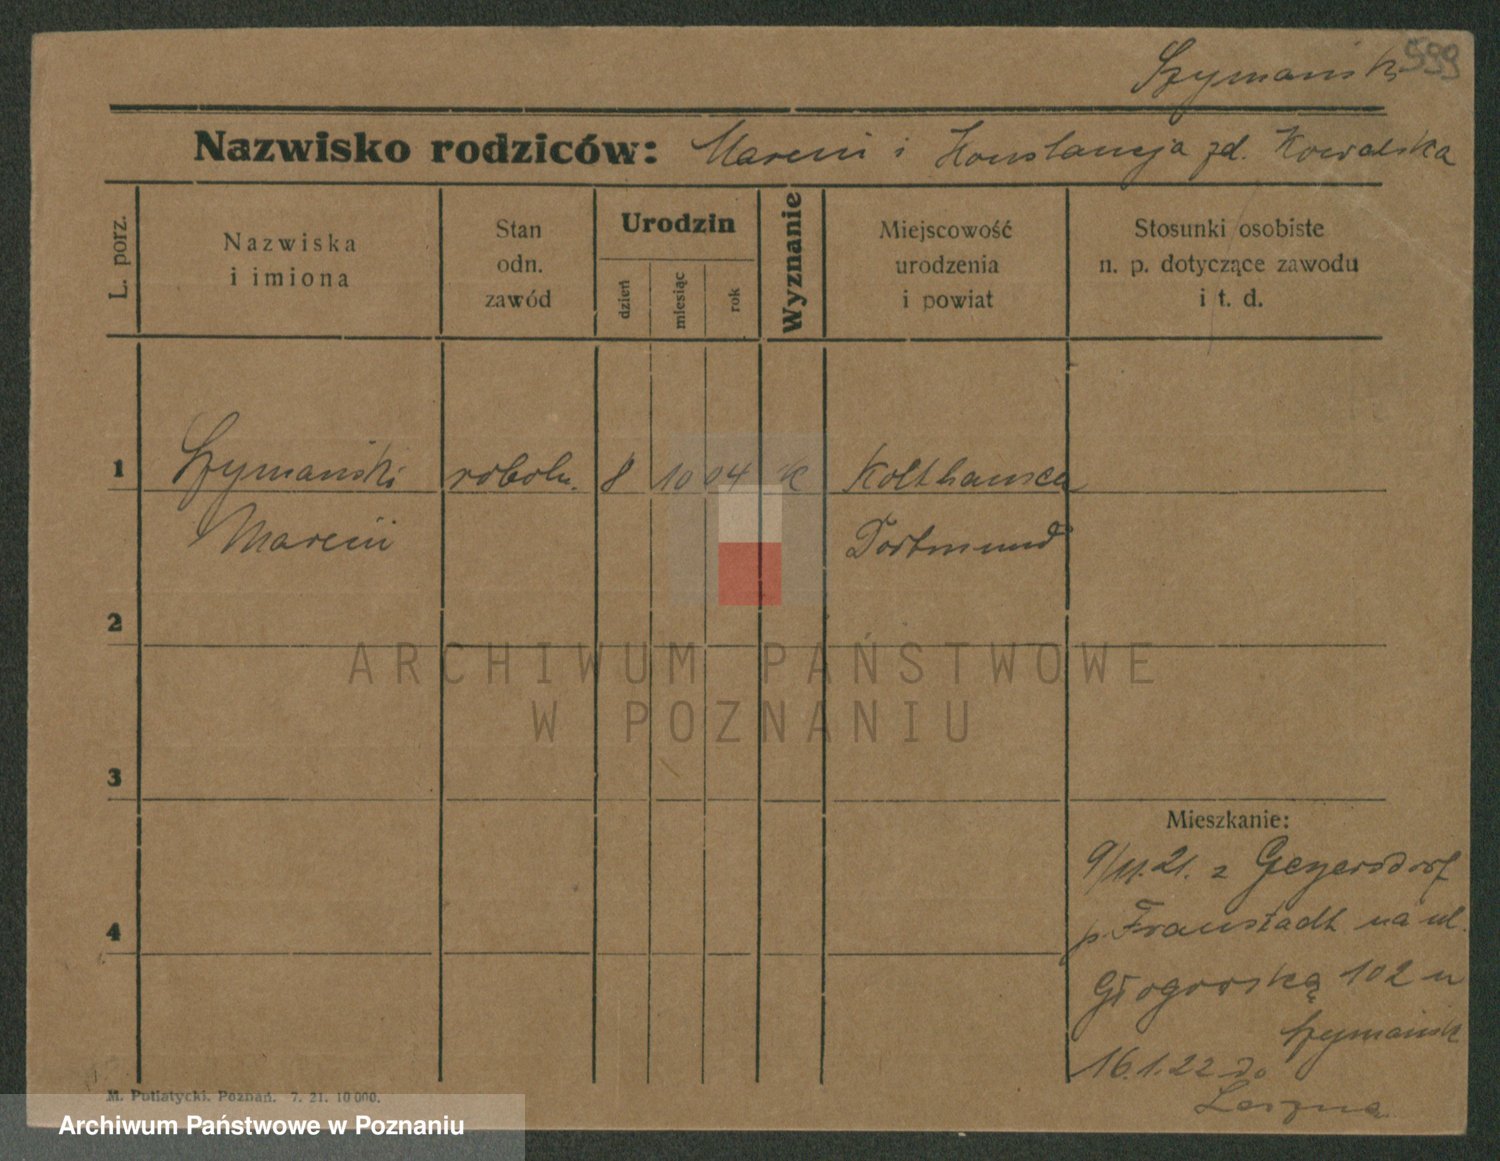 599
Szymański
Nazwisko rodziców: Marcin i Konstancja zd. Kowalska
L. porz.
Nazwiska
i imiona
Stan
odn.
zawód
Urodzin
dzień
miesiąc
rok
Wyznanie
Miejscowość
urodzenia
i powiat
Stosunki osobiste
n. p. dotyczące zawodu
i t. d.
1 Szymański robotn. 8 10 04 k Kolthausen
Marcin Dortmund
2
ARCHIWUM PAŃSTWOWE
W POZNANIU
3
Mieszkanie:
9/11.21. z Geyersdorf
p. Fraustadt na ul.
4
Głogowską 102 u
Szymańsk
16.1.22 do
Leszna
M. Putiatycki, Poznań. 7. 21. 10 000.
Archiwum Państwowe w Poznaniu